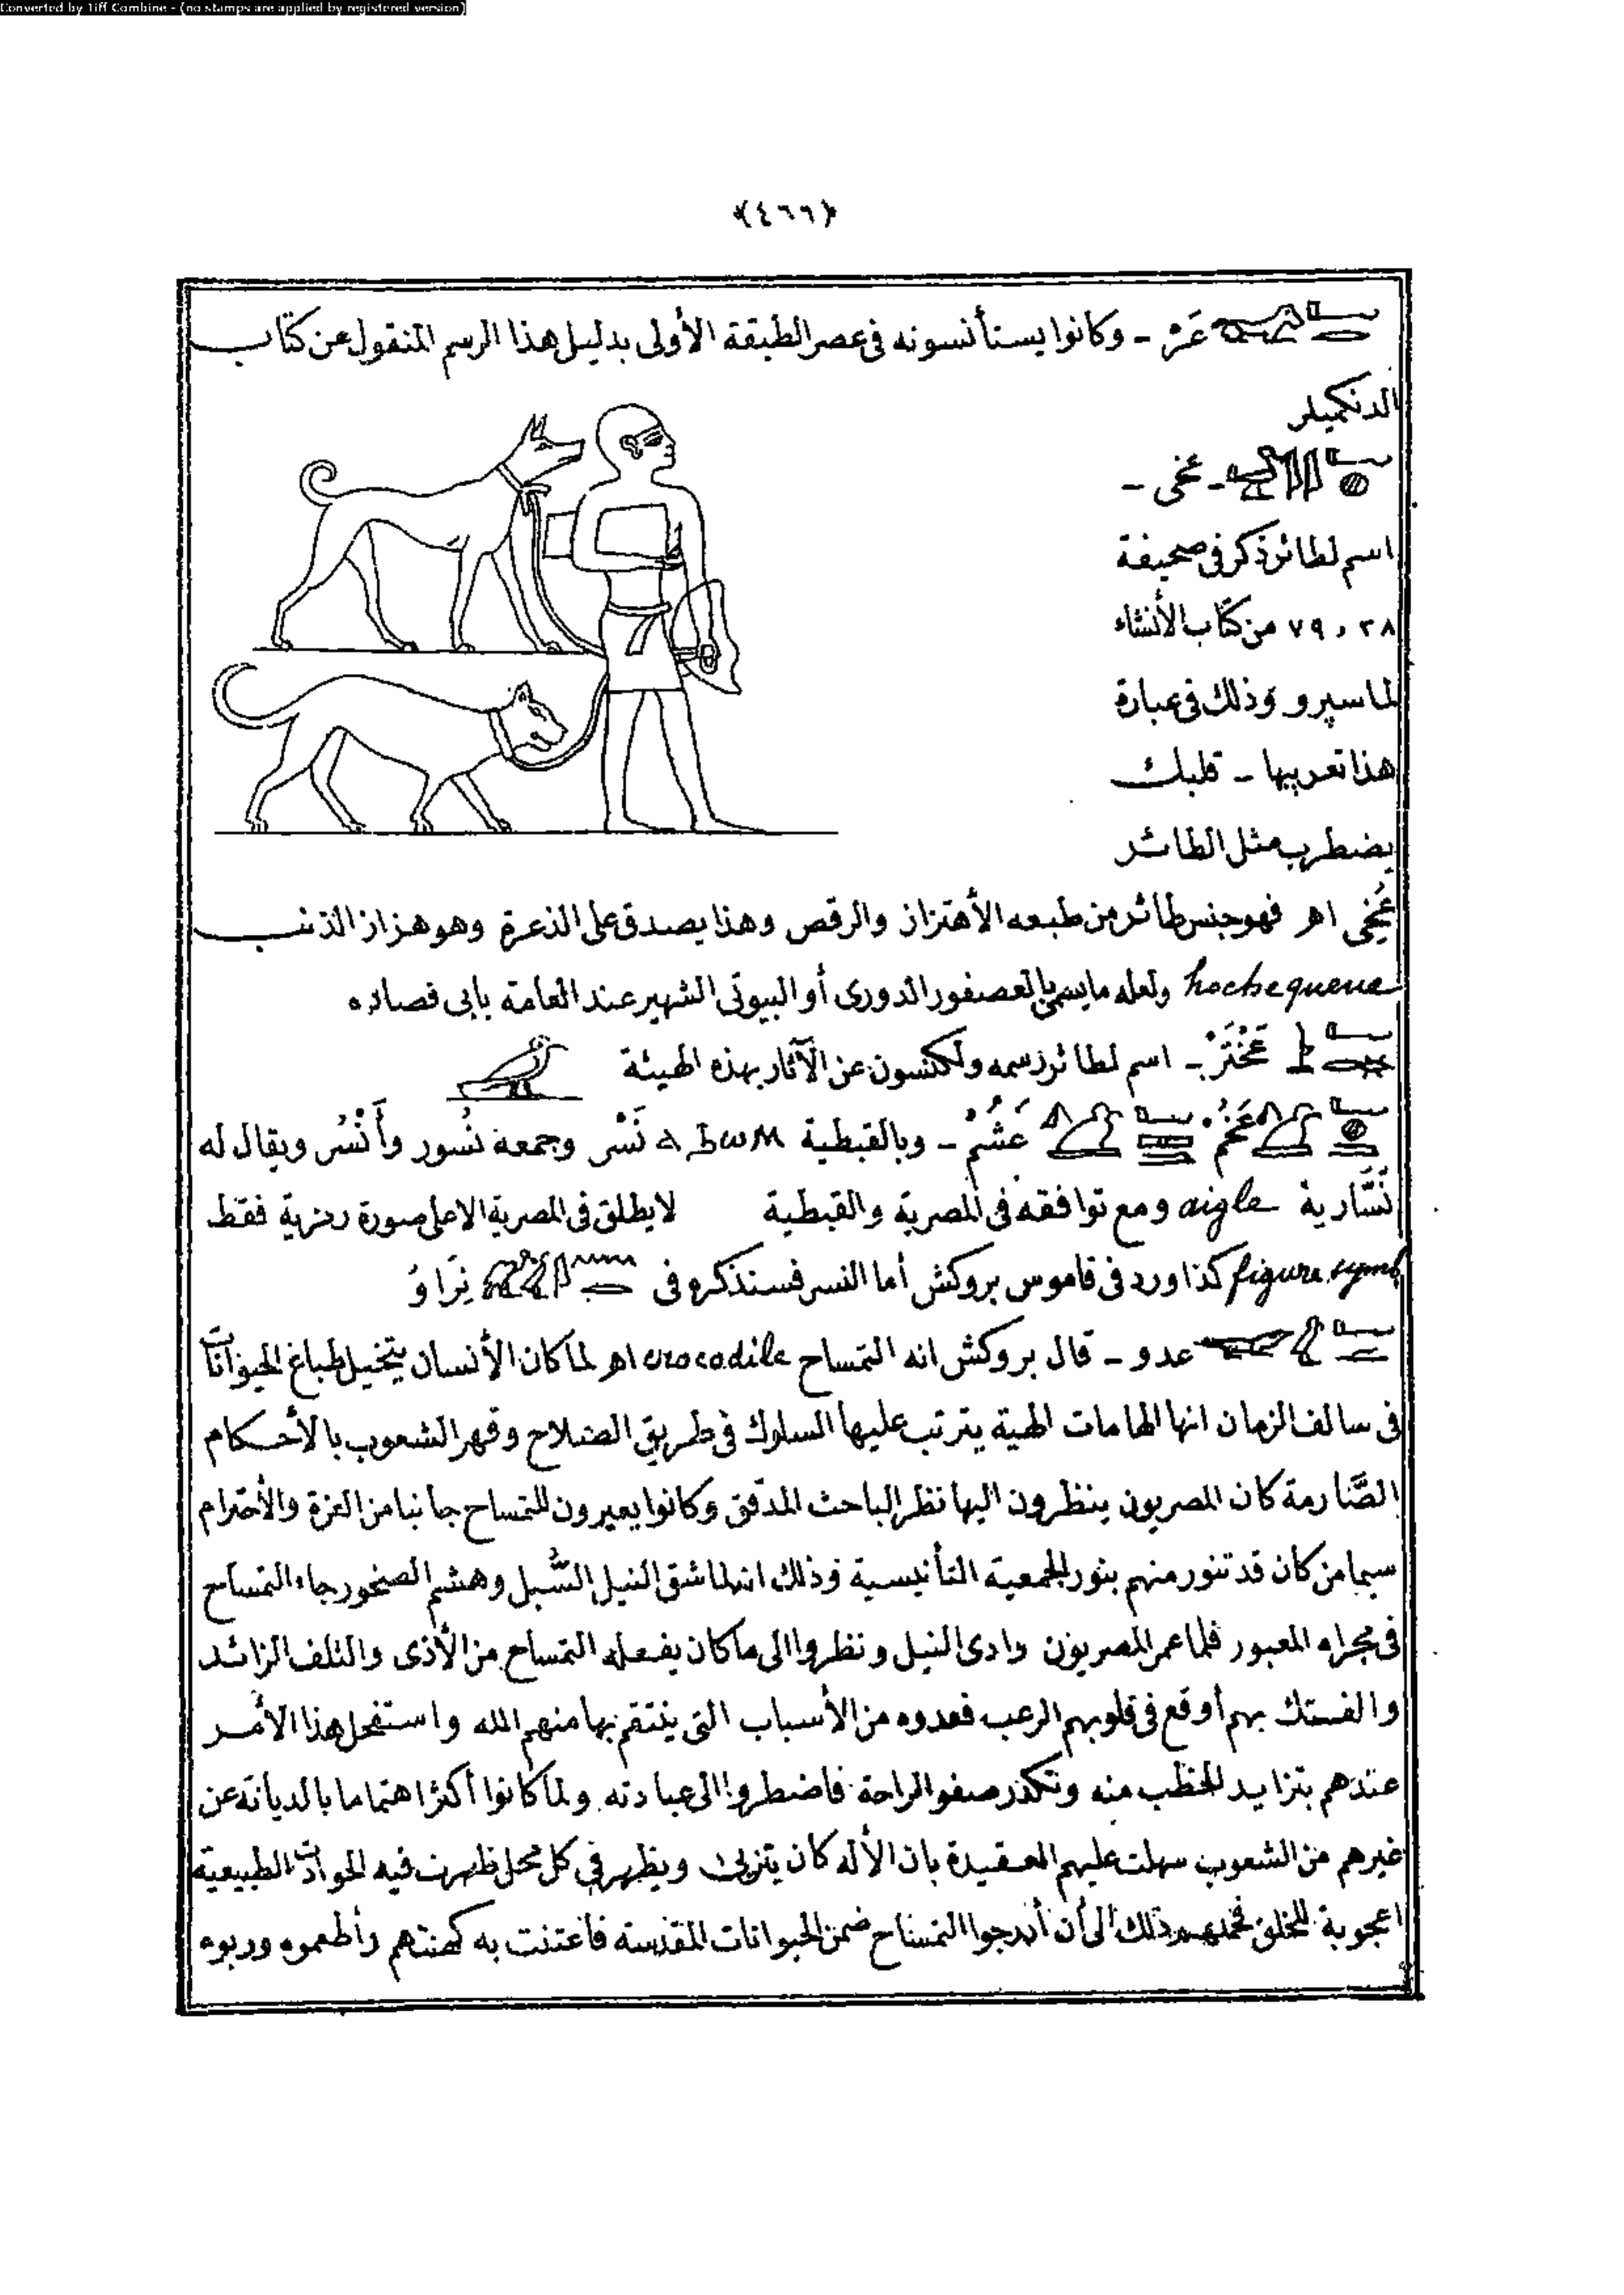 Converted by Tiff Combine - (no stamps are applied by registered version)
﴿٤٦٦﴾
عَرْ - وكانوا يستأنسونه فى عصر الطبقة الأولى بدليل هذا الرسم المنقول عن كتاب
الدنكميلر
- عخى -
اسم لطائر ذكر فى صحيفة
٣٨ و ٧٩ من كتاب الأنشاء
لماسپرو وذلك فى عبارة
هذا تعريبها - قلبك
يضطرب مثل الطائر
عُخِى اهـ فهو جنس طائر من طبعه الأهتزاز والرقص وهذا يصدق على الذعرة وهو هزاز الذنب
hochequeue ولعله مايسمى بالعصفور الدورى أو البيوتى الشهير عند العامة بابى فصاده
عَخْنَتَرْ - اسم لطائر رسمه ولكنسون عن الآثار بهذه الهيئة
عَخُمْ عَشُمْ - وبالقبطية نَسْر وجمعه نُسور وأَنْسُر ويقال له
نَسَّارية aigle ومع توافقه فى المصرية والقبطية لايطلق فى المصرية الاعلى صورة رمزية فقط
figure symb كذا ورد فى قاموس بروكش أما النسر فستذكره فى نِرَاوُ
عدو - قال بروكش انه التمساح crocodile اهـ لما كان الأنسان يتخيل طباع الحيوانات
فى سالف الزمان انها الهامات الهية يترتب عليها السلوك فى طريق الصلاح وقهر الشعوب بالأحكام
الصَّارمة كان المصريون ينظرون اليها نظر الباحث المدقق وكانوا يعيرون للتمساح جانبا من العزة والأحترام
سيما من كان قد تنور منهم بنور الجمعية التأنيسية وذلك انه لما شق النيل السُّبل وهشم الصخور جاء التمساح
فى مجراه المعبور فلما عمر المصريون وادى النيل ونظروا الى ما كان يفعله التمساح من الأذى والتلف الزائد
والفتك بهم أوقع فى قلوبهم الرعب فعدوه من الأسباب التى ينتقم بها منهم الله واستفحل هذا الأمر
عندهم بتزايد الخطب منه وتكدر صفو الراحة فاضطروا الى عبادته ولما كانوا أكثر اهتماما بالديانة عن
غيرهم من الشعوب سهلت عليهم العقيدة بان الأله كان ويظهر فى كل محل ظهرت فيه الحوادث الطبيعية
اعجوبة للخلق ذلك الى أن أدرجوا التمساح ضمن الحيوانات المقدسة فأعتنت به كهنتهم وأطعموه وربوه